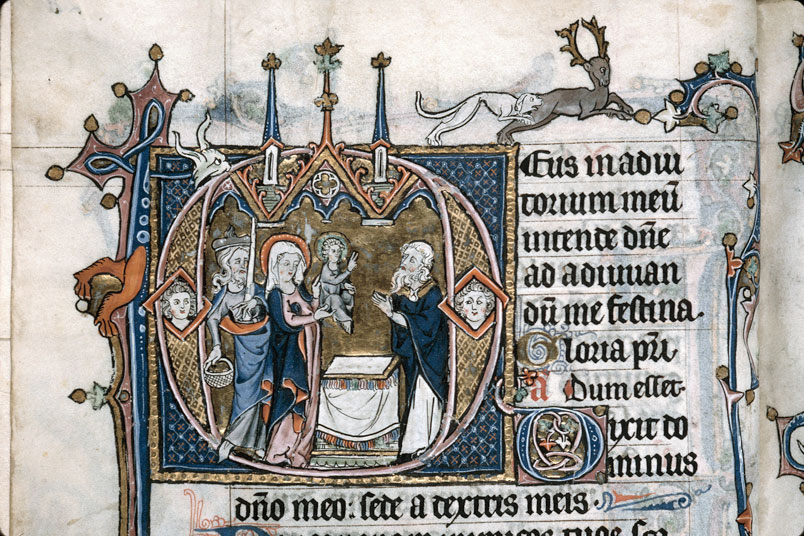 Eus in adiu
torium meū
intende dn̄e
ad adiuuan
dū me festina.
Gloria pr̄i.
a Dum esset.
Dixit do
minus
dn̄o meo: sede a dextris meis